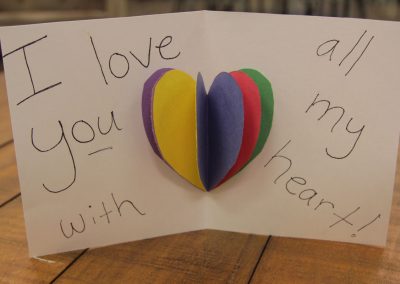 I love
you
with
all
my
heart!